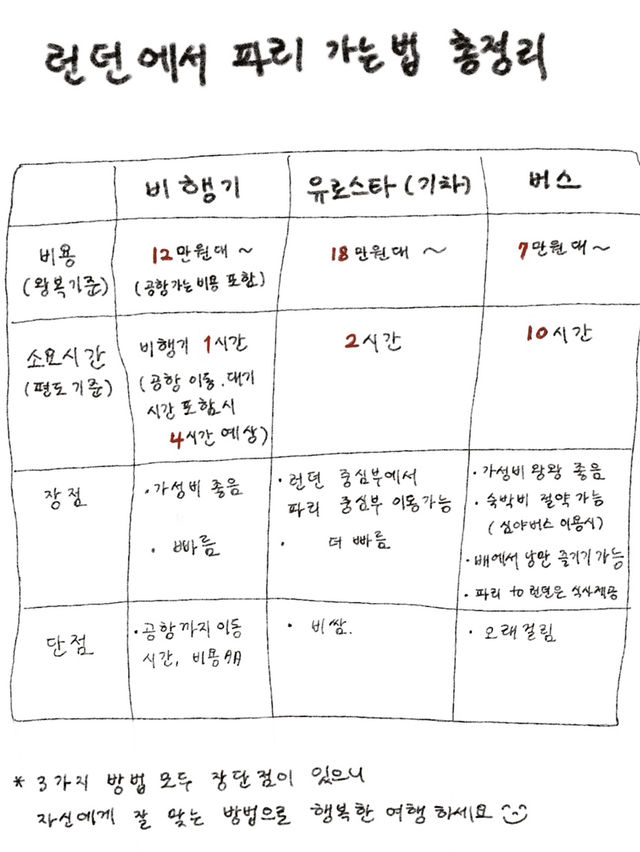 런던에서 파리 가는법 총정리
비행기
유로스타(기차)
버스
비용
(왕복기준)
12만원대 ~
(공항가는비용 포함)
18만원대 ~
7만원대~
소요시간
(편도기준)
비행기 1시간
(공항 이동.대기
시간 포함시
4시간 예상)
2시간
10시간
장점
·가성비 좋음
· 빠름
·런던 중심부에서
파리 중심부 이동가능
· 더 빠름
·가성비 왕왕 좋음
·숙박비 절약 가능
(심야버스 이용시)
·배에서 낭만 즐기기 가능
·파리 to 런던은 식사제공
단점
·공항까지 이동
시간, 비용
· 비쌈.
·오래걸림
* 3가지 방법 모두 장단점이 있으니
자신에게 잘 맞는 방법으로 행복한 여행하세요